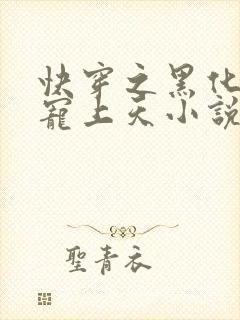 快穿之黑化
寵上天小說
聖青衣